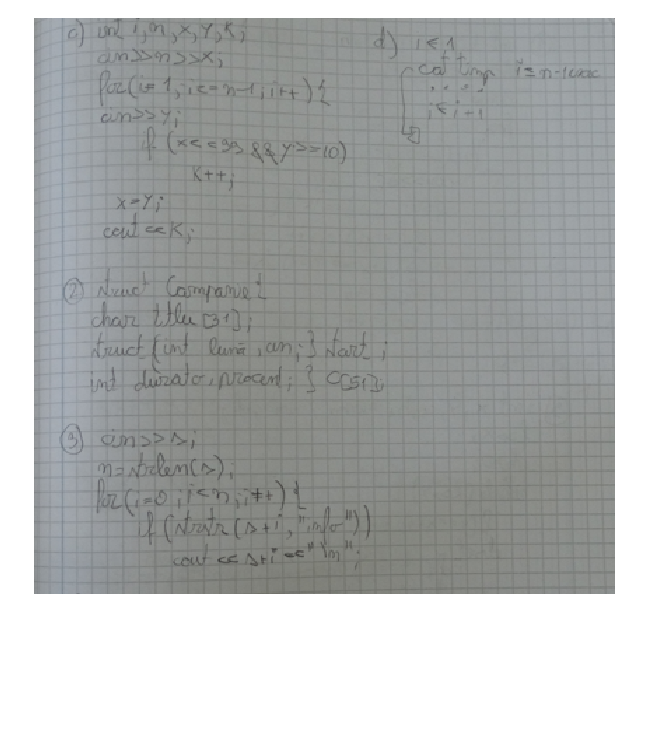 c) int i, n, x, y, k;
cin>>n>>x;
for(i=1; i<=n-1; i++){
cin>>y;
if (x<=99 && y>=10)
k++;
x=y;
cout<<k;
d) i←1
cat timp i≤n-1 exec
. . . .
i←i-1
② struct Companie{
char titlu[31];
struct {int luna, an;} start;
int durata, procent; } C[51];
③ cin>>s;
n=strlen(s);
for(i=0; i<n; i++){
if (strstr(s+i, "info"))
cout<<s+i<<"\n";